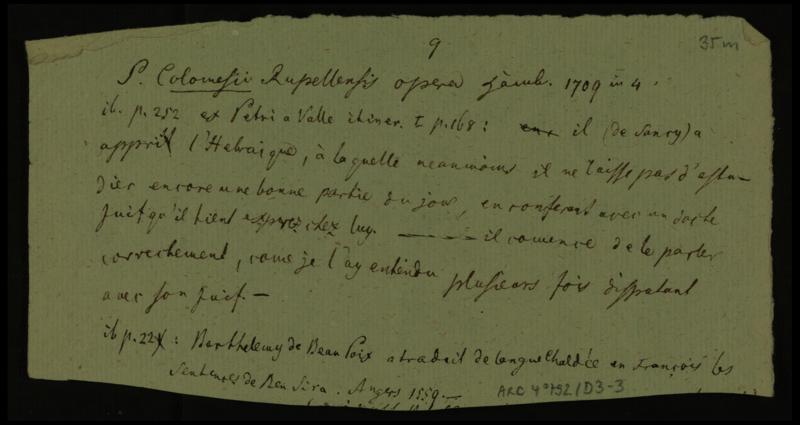 9
35m
P. Colomesii Rupellensis opera Hamb. 1709 in 4.
ib. p. 252 ex Petri a Valle itiner. t. p. 168: il (de Sancy) a
appris l'Hebraique, à laquelle neanmoins il ne laisse pas d'estu-
dier encore une bonne partie du jour, en conferant avec un docte
Juif qu'il tient exprez chez luy. — il comence de le parler
correctement, come je l'ay entendu plusieurs fois disputant
avec son Juif. —
ib p. 224: Barthelemy de Beau Poix a traduit de langue Chaldée en François les
Sentences de Ben Sira. Angers 1559. —
ARC 4°792/D3-3